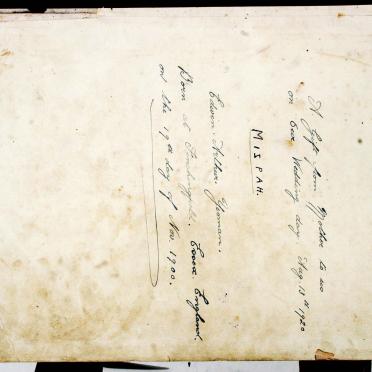 A Gift from Mother to us
on our Wedding day Aug 18th 1920
MISPAH.
Edwin Arthur Yeoman.
Born at Essex England.
on the 19th day of Nov. 1900.